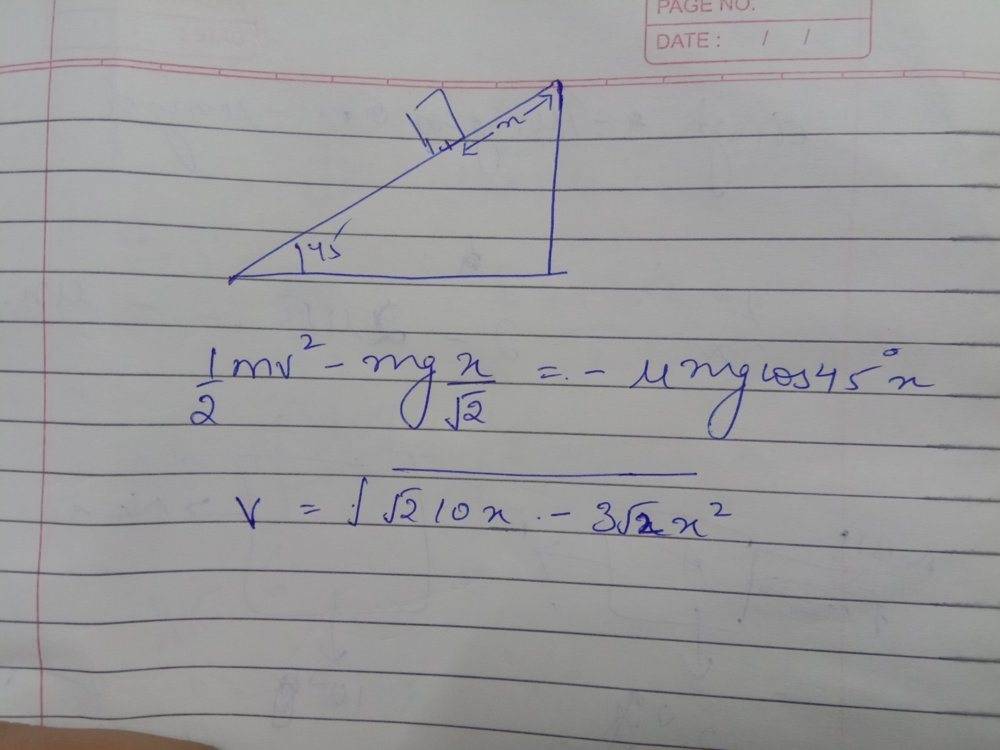 PAGE NO.
DATE: / /
x
45°
1/2 mv² - mg x/√2 = - μmg cos45° x
v = √(√2 10x - 3√2 x²)